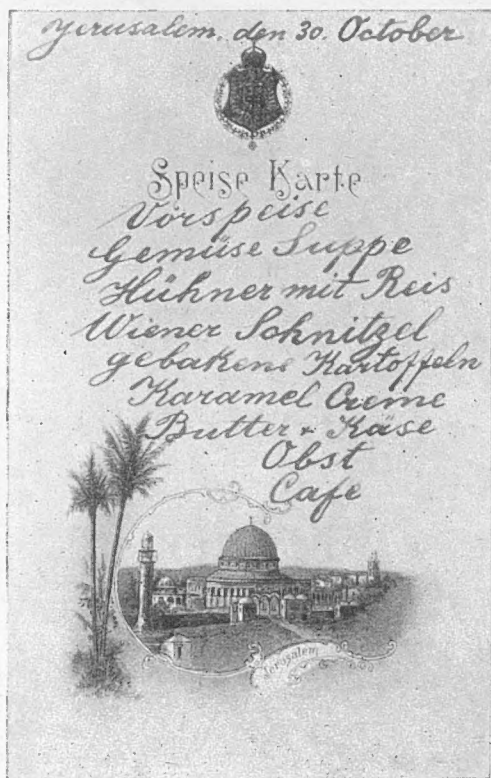 Jerusalem, den 30. October
Speise Karte
Vorspeise
Gemüse Suppe
Hühner mit Reis
Wiener Schnitzel
gebakene Kartoffeln
Karamel Creme
Butter + Käse
Obst
Cafe
Jerusalem